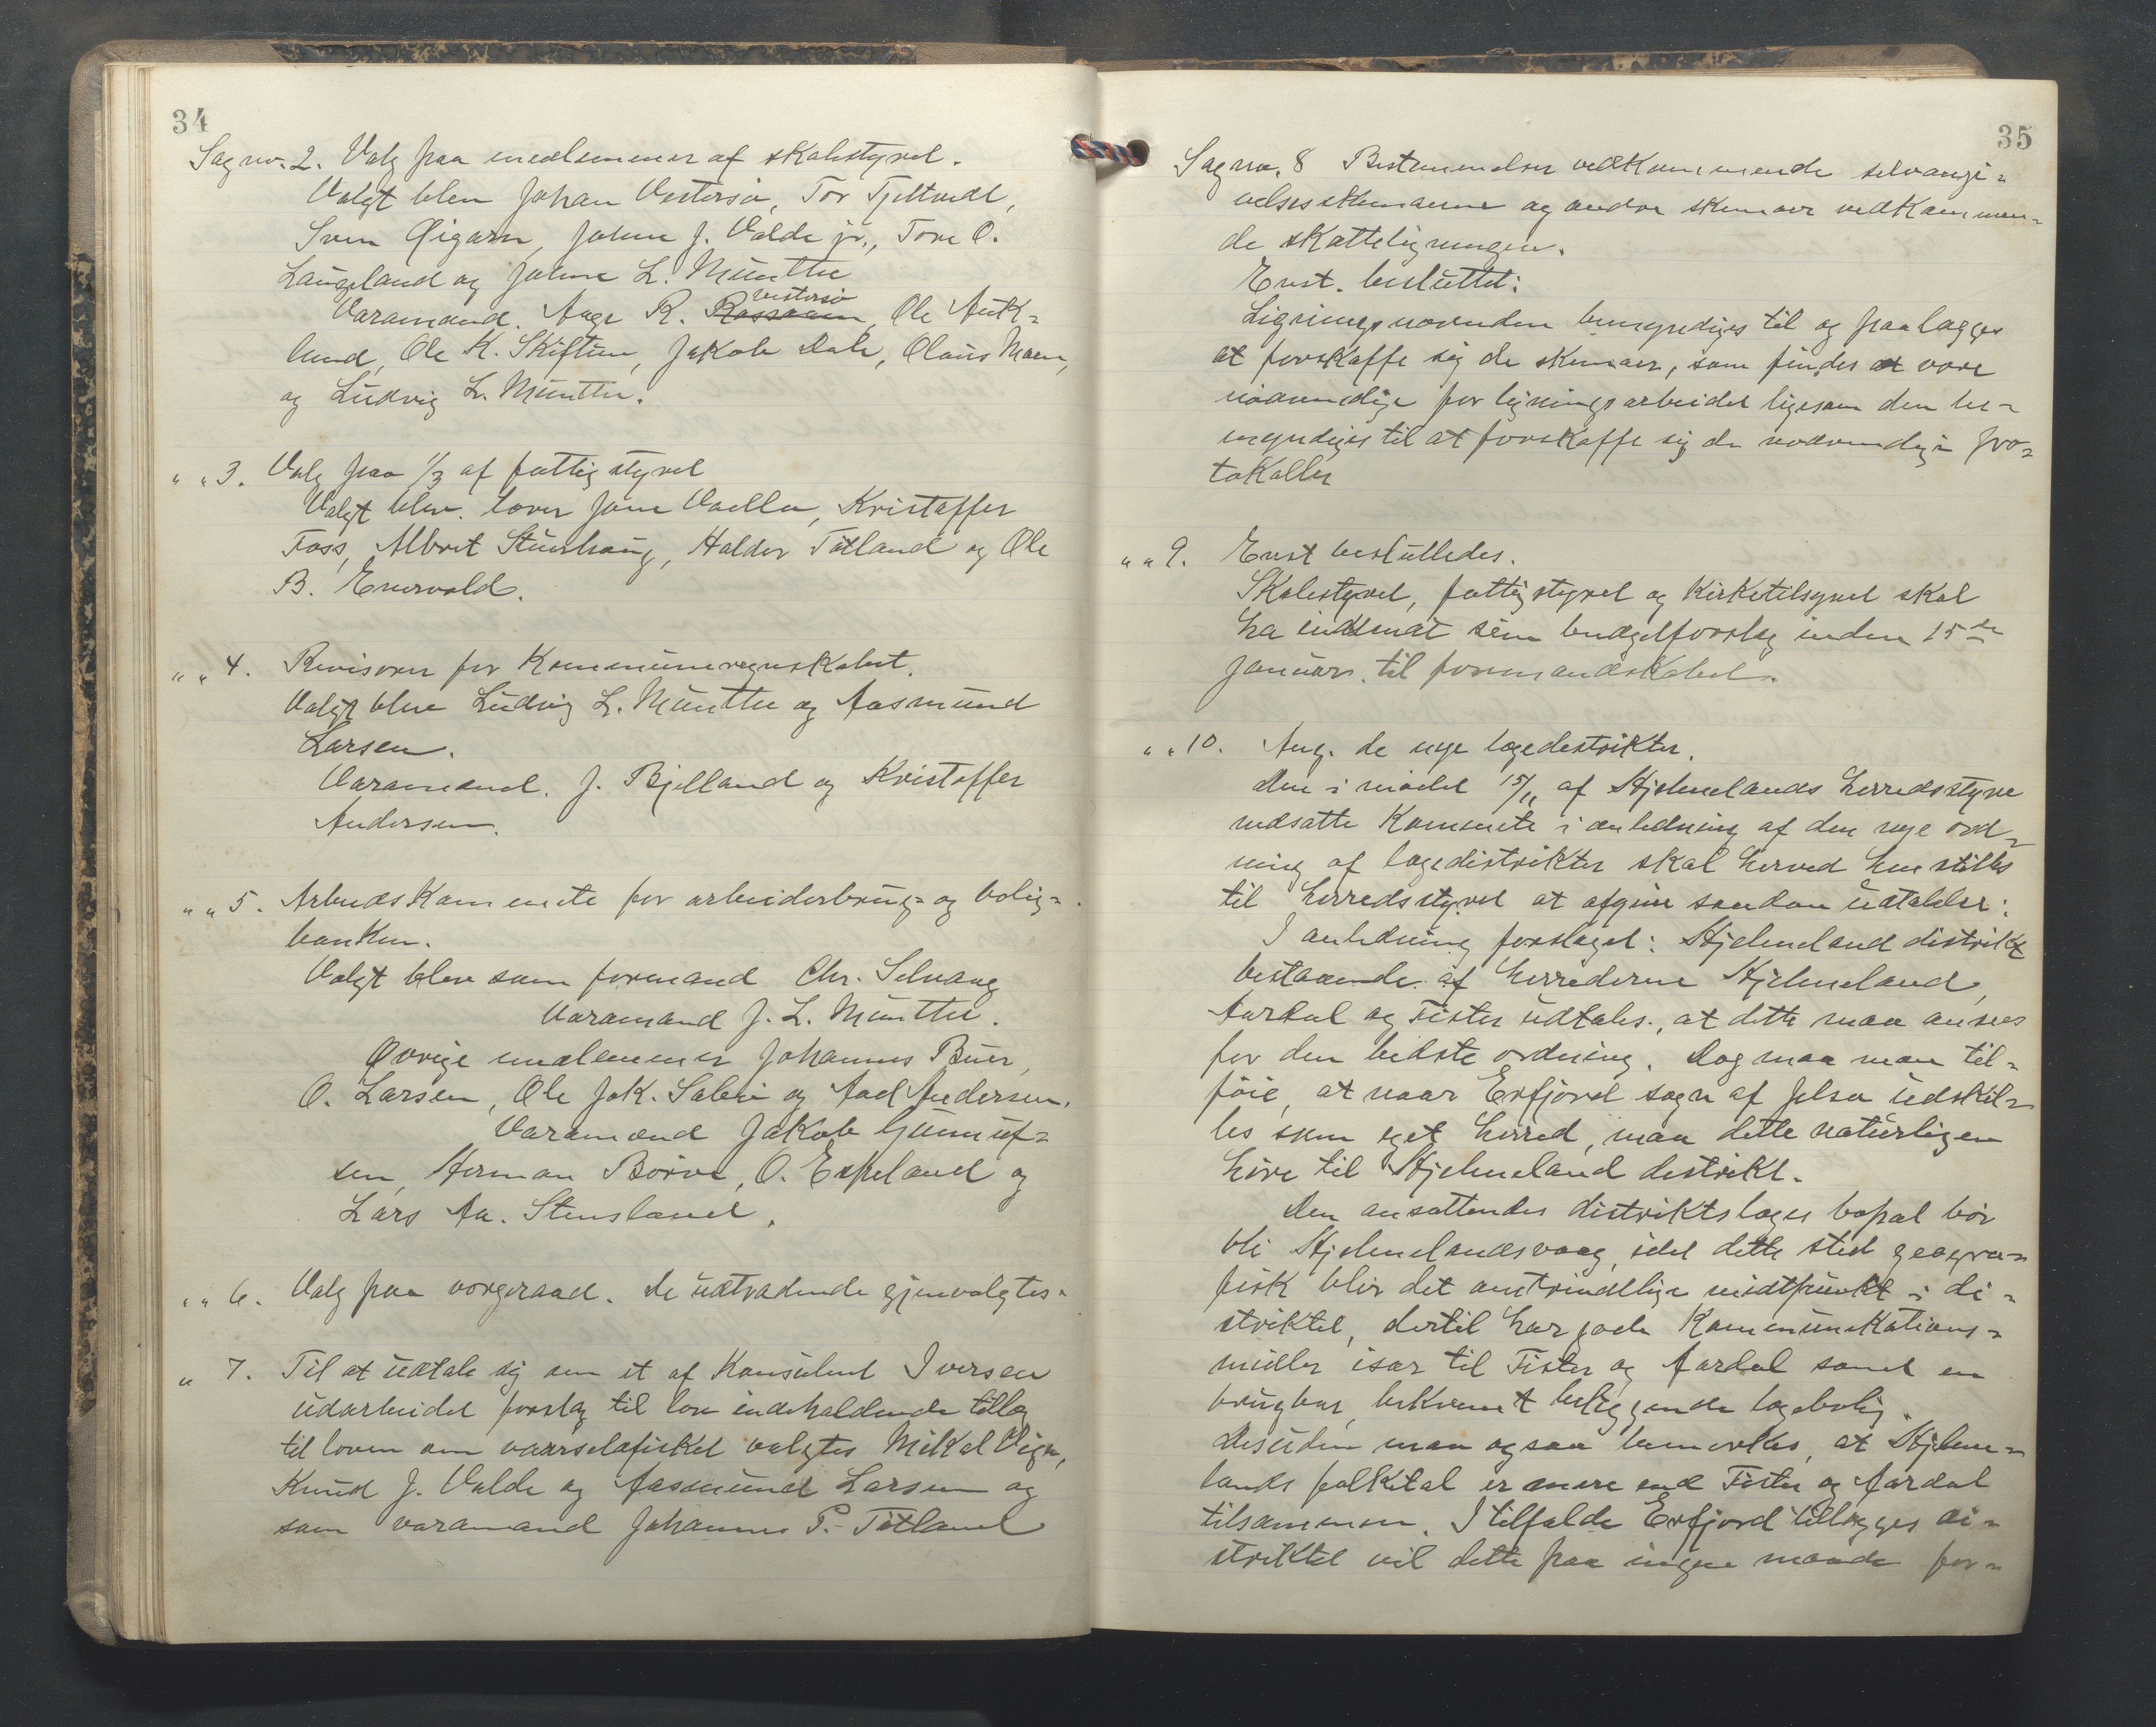 34
Sag no. 2. Valg paa medlemmer af skolestyret.
Valgt blev Johan Vestersjø, Tor Tjeltvedt,
Sven Øigarn, Johne J. Valde jr., Tore O.
Laugaland og Johne L. Münthe
Varamænd. Aage R. Rossaaen Vestersø, Ole Auk-
lund, Ole K. Skiftun, Jakob Dale, Olaus Maen,
og Ludvig L. Munthe.
" " 3. Valg paa 1/3 af fattigstyret
Valgt blev. Lover Jone Valla, Kristoffer
Foss, Albret Stuerhaug, Haldor Tøtland og Ole
B. Enervold.
" " 4. Revisorer for Kommuneregnskabet.
Valgt blev Ludvig L. Munthe og Aasmund
Larsen.
Varamænd. J. Bjelland og Kristoffer
Andersen.
" " 5. Arbeidskommite for arbeiderbrug- og bolig-
banken.
Valgt blev som formand Chr. Selvaag
Varamand J. L. Munthe.
Øvrige medlemmer Johannes Buer,
O. Larsen, Ole Jak. Sabø og Aad Andersen.
Varamænd Jakob Gunnuf-
sen, Herman Børve, O. Espeland og
Lars Aa. Stensland.
" " 6. Valg paa vorgeraad. De udtrædende gjenvalgtes.
" 7. Til at udtale sig om et af Konsulent Iversen
udarbeidet forslag til lov indeholdende tillæg
til loven om vaarsildfisket valgtes Mikal Vign,
Knud J. Valde og Aasmund Larsen og
som varamand Johannes P. Tøtland
35
Sag no. 8 Bestemmelser vedkommende selvangi-
velsesskemaerne og andre skemaer vedkommen-
de skatteligningen.
Enst. besluttet:
Ligningsnævnden bemyndiges til og paalægges
at forskaffe sig de skemaer, som findes at være
nødvendige for ligningsarbeidet ligesom den be-
myndiges til at forskaffe sig de nødvendige pro-
tokoller
" " 9. Enst besluttedes.
Skolestyret, fattigstyret og Kirketilsynet skal
ha indsendt sine budgetforslag inden 15de
januar. til formandskabet.
" " 10. Ang. de nye lægedistrikter.
Den i mødet 15/11 af Hjelmelands herredsstyre
nedsatte Kommite i anledning af den nye ord-
ning af lægedistrikter skal herved henstilles
til herredsstyret at afgive saadan udtalelse:
I anledning forslaget: Hjelmeland distrikt
bestaaende af herrederne Hjelmeland,
Aardal og Fister udtales, at dette maa ansees
for den bedste ordning. Dog maa man til-
føie, at naar Erfjord sogn af Jelsa udskil-
les som eget herred, maa dette naturligen
høre til Hjelmeland distrikt.
Den ansættendes distriktslæges bopæl bør
bli Hjelmelandsvaag, idet dette sted geogra-
fisk blir det omtrindelige midtpunkt i di-
striktet, dertil har gode Kommunikations-
midler især til Fister og Aardal samt en
brugbar, bekvemt beliggende lægebolig.
Desuden maa ogsaa bemerkes, at Hjelme-
lands folketal er mere end Fister og Aardal
tilsammen. I tilfælde Erfjord tillægges di-
striktet vil dette paa ingen maade for-